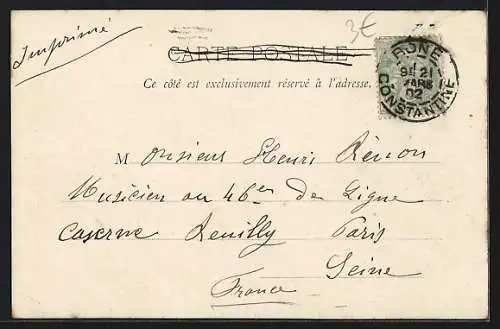 Imprimé
3€
CARTE POSTALE
BONE
CONSTANTINE
02
Ce côté est exclusivement réservé à l'adresse.
Monsieur Henri
Musicien au 46e de Ligne
Caserne Reuilly Paris
Seine
France